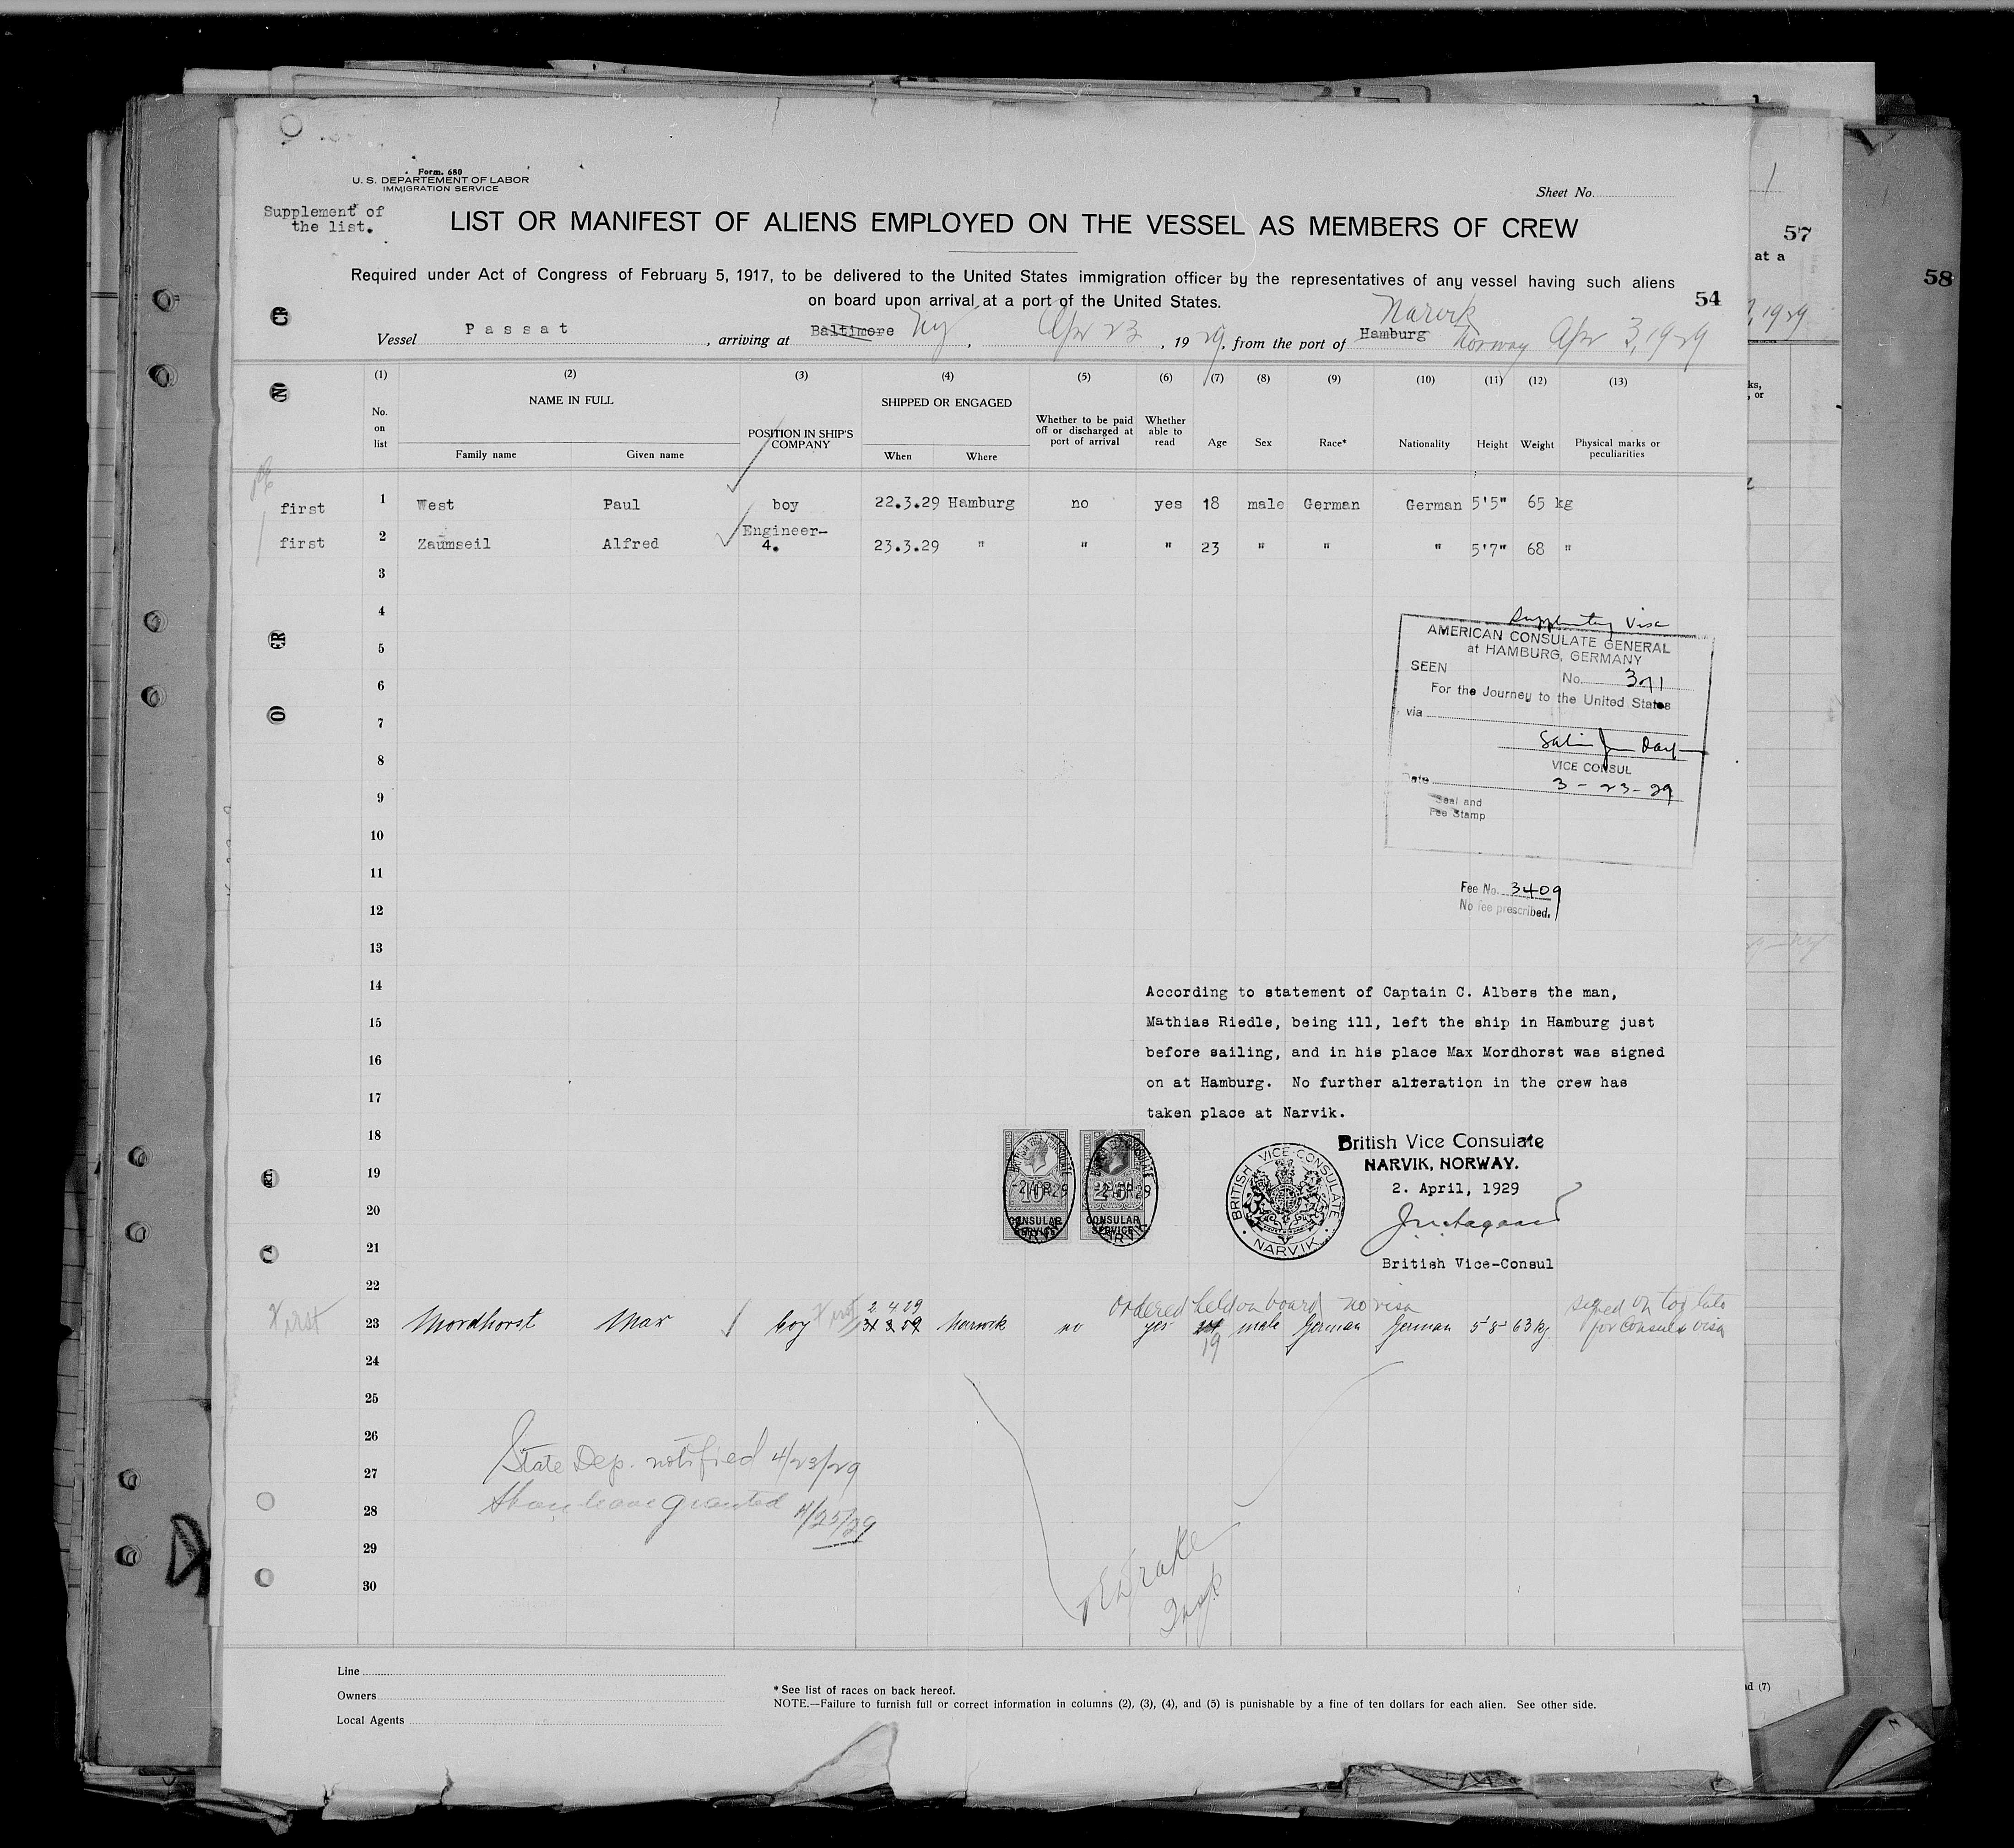 Form. 680
U. S. DEPARTEMENT OF LABOR
IMMIGRATION SERVICE
Sheet No.
Supplement of
the list.
LIST OR MANIFEST OF ALIENS EMPLOYED ON THE VESSEL AS MEMBERS OF CREW
57
Required under Act of Congress of February 5, 1917, to be delivered to the United States immigration officer by the representatives of any vessel having such aliens
on board upon arrival at a port of the United States.
at a
58
54
Narvik
Vessel Passat, arriving at Baltimore NY, Apr 23, 1929, from the port of Hamburg Norway Apr 3, 1929
, 1929
(1) (2) (3) (4) (5) (6) (7) (8) (9) (10) (11) (12) (13)
No. on list
NAME IN FULL
Family name
Given name
POSITION IN SHIP'S COMPANY
SHIPPED OR ENGAGED
When
Where
Whether to be paid off or discharged at port of arrival
Whether able to read
Age
Sex
Race*
Nationality
Height
Weight
Physical marks or peculiarities
ks,
, or
first 1 West Paul boy 22.3.29 Hamburg no yes 18 male German German 5'5" 65 kg
first 2 Zaumseil Alfred Engineer-4. 23.3.29 " " " 23 " " " 5'7" 68 "
3
4
5
6
7
8
9
10
11
12
13
14
15
16
17
18
19
20
21
22
Visa
AMERICAN CONSULATE GENERAL
at HAMBURG, GERMANY
SEEN
No. 371
For the Journey to the United States
via
VICE CONSUL
Date 3-23-29
Seal and
Fee Stamp
Fee No. 3409
No fee prescribed.
According to statement of Captain C. Albers the man,
Mathias Riedle, being ill, left the ship in Hamburg just
before sailing, and in his place Max Mordhorst was signed
on at Hamburg. No further alteration in the crew has
taken place at Narvik.
-2 APR 29
CONSULAR
SERVICE
-2 APR 29
CONSULAR
SERVICE
BRITISH VICE-CONSULATE
NARVIK
British Vice Consulate
NARVIK, NORWAY.
2. April, 1929
British Vice-Consul
ordered held on board no visa
signed on too late
for Consular visa
2 4 29
first 23 Mordhorst Max boy first 31 3 29 Narvik no yes male German German 5'8" 63 kg
19
24
25
26
27
28
29
30
State Dep. notified 4/23/29
Shore leave granted 4/25/29
Insp
Line
Owners
Local Agents
* See list of races on back hereof.
NOTE.—Failure to furnish full or correct information in columns (2), (3), (4), and (5) is punishable by a fine of ten dollars for each alien. See other side.
nd (7)
CR
N
CR
O
RI
A